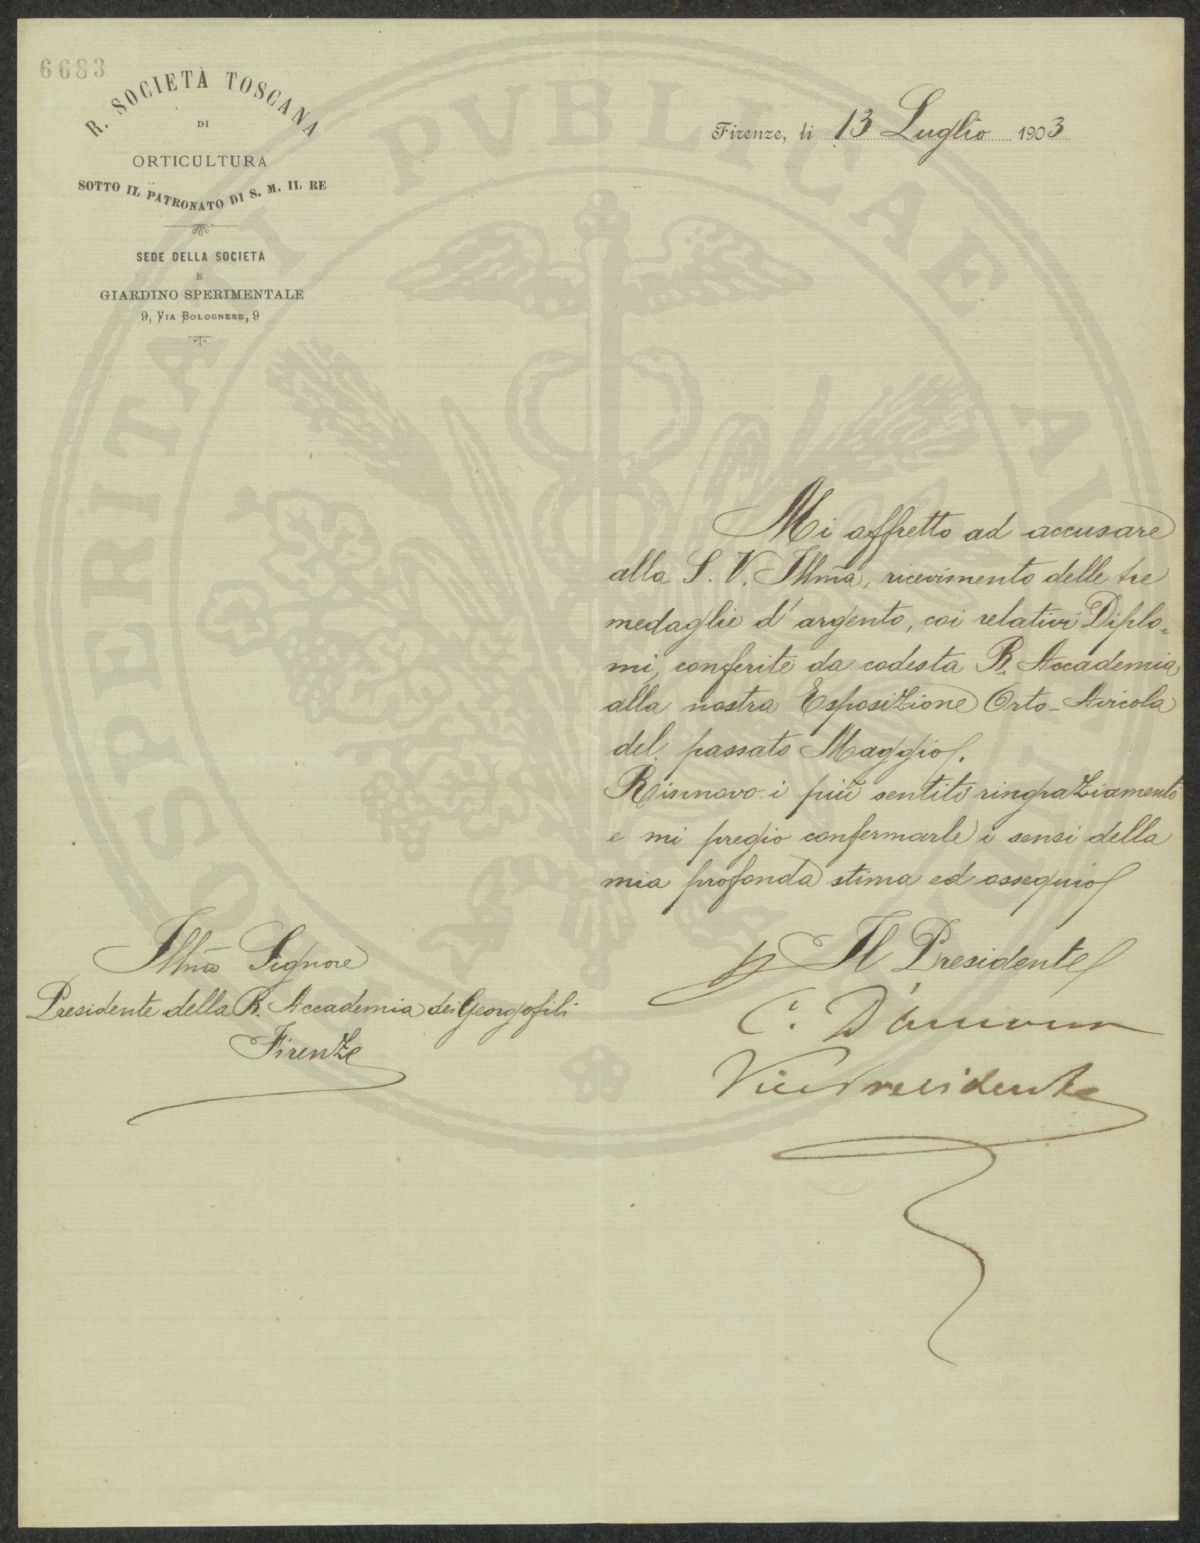 6683
R. SOCIETÀ TOSCANA
DI
ORTICULTURA
SOTTO IL PATRONATO DI S. M. IL RE
SEDE DELLA SOCIETÀ
E
GIARDINO SPERIMENTALE
9, VIA BOLOGNESE, 9
Firenze, li 13 Luglio 1903
Mi affretto ad accusare
alla S. V. Illma, ricevimento delle tre
medaglie d'argento, coi relativi Diplo=
mi, conferite da codesta R. Accademia
alla nostra Esposizione Orto-Avicola
del passato Maggio.
Rinnovo i più sentiti ringraziamenti
e mi pregio confermarle i sensi della
mia profonda stima ed ossequio
p Il Presidente
C. D'Ancona
Vice Presidente
Illmo Signore
Presidente della R. Accademia dei Georgofili
Firenze
PROSPERITATI PVBLICAE AVGENDAE